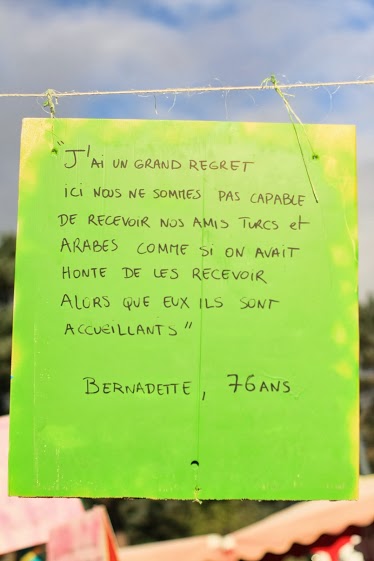 "J'AI UN GRAND REGRET
ICI NOUS NE SOMMES PAS CAPABLE
DE RECEVOIR NOS AMIS TURCS et
ARABES COMME SI ON AVAIT
HONTE DE LES RECEVOIR
ALORS QUE EUX ILS SONT
ACCUEILLANTS"
BERNADETTE, 76 ANS